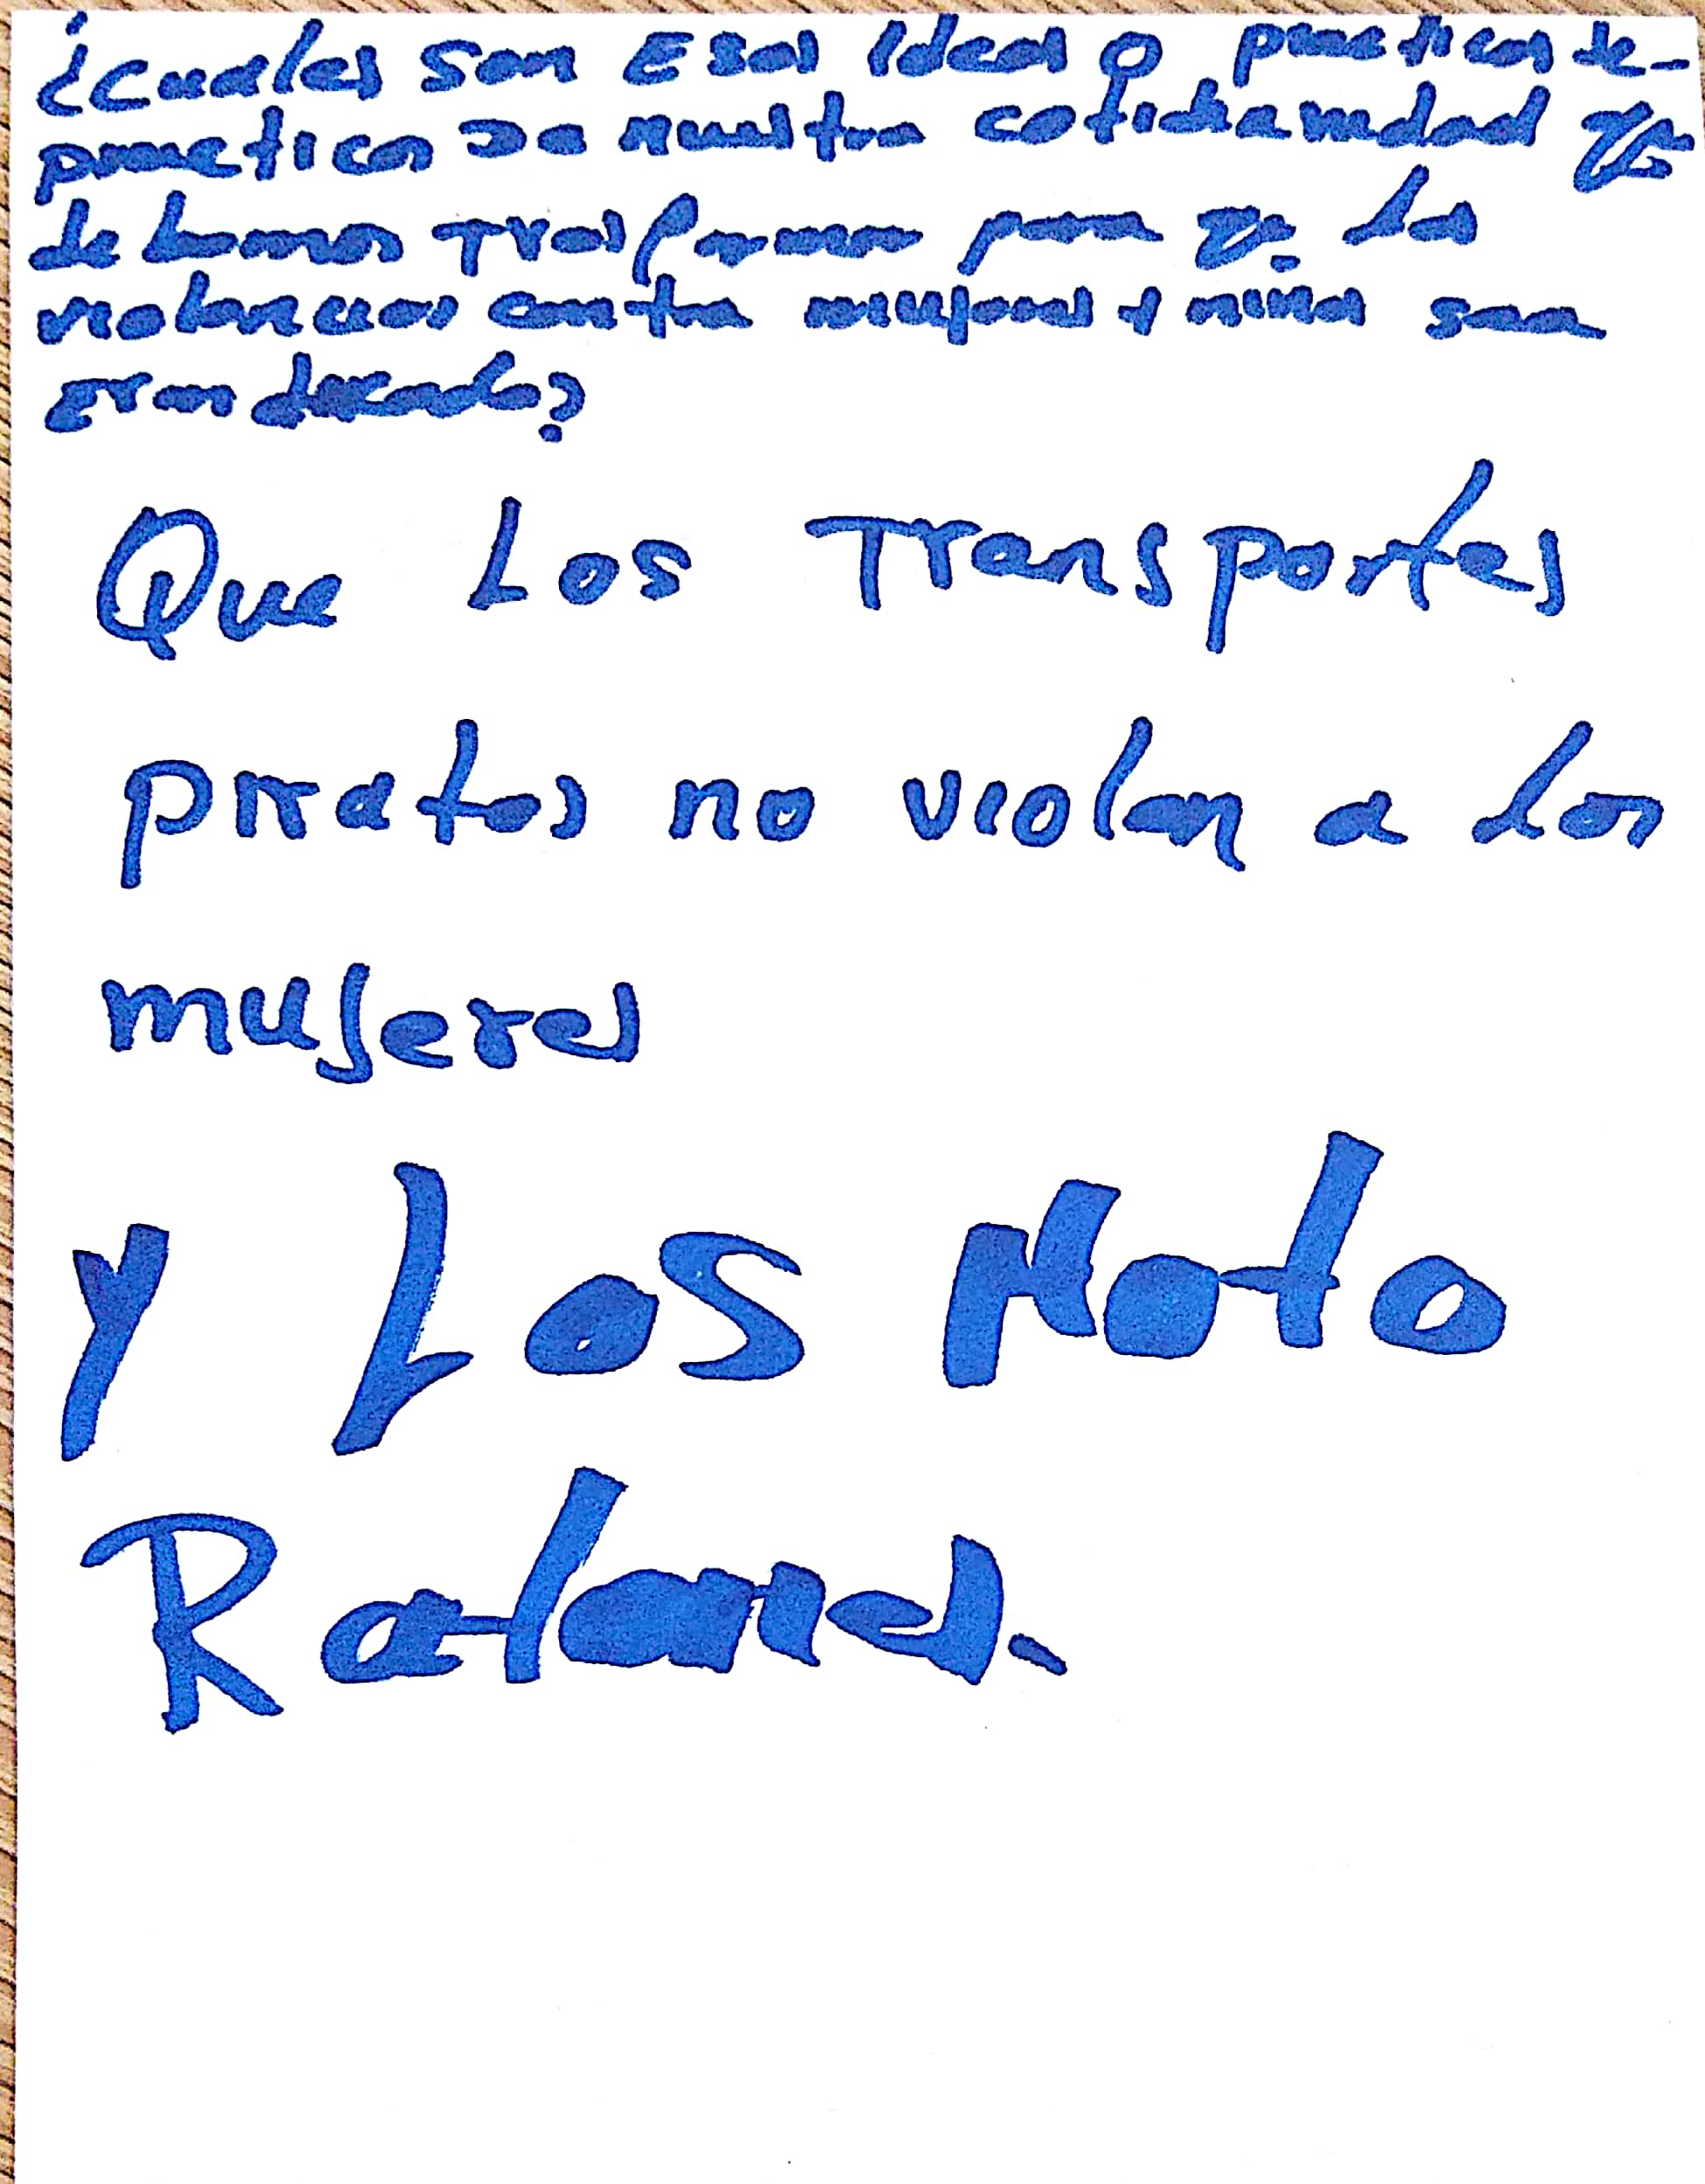 ¿Cuales son Esas Ideas o practicas de-
practicas De nuestra cotidianedad q
debemos Trasformar para q. las
violencias contra mujeres y niñas sean
Erradicado?
Que Los Transportes
piratas no violan a las
mujeres
y Los Moto
Ratones.